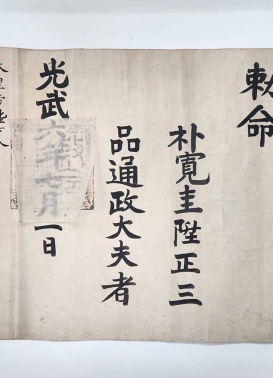 勅命
朴寬圭陞正三
品通政大夫者
光武六年七月一日